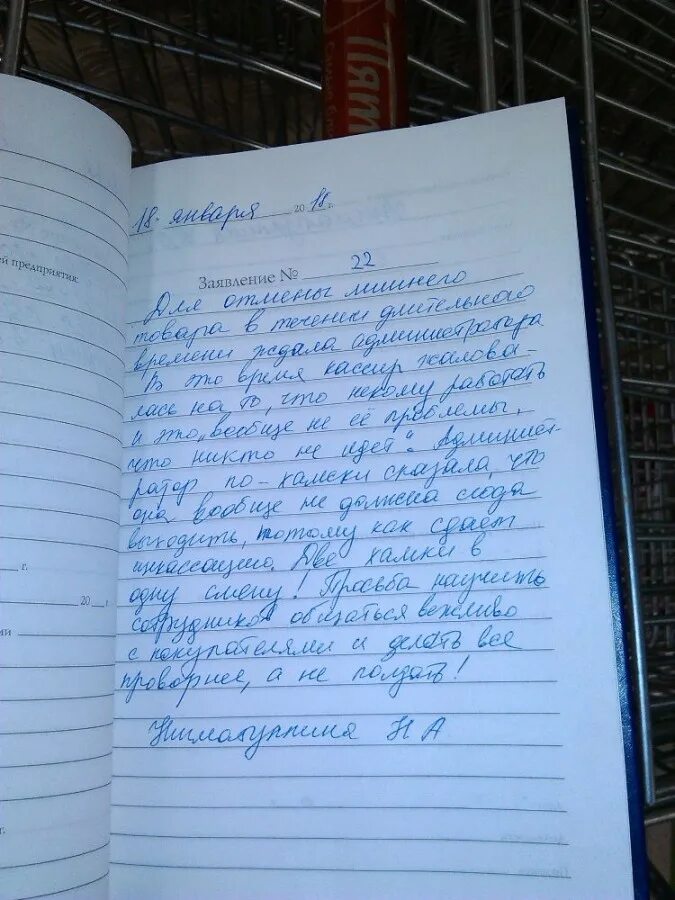 Пят
18. января 2018 г.
ей предприятия:
Заявление № 22
Для отмены лишнего
товара в течении длительного
времени ждала администратора
В это время кассир жалова
лась на то, что некому работать
и это, вообще не её проблемы,
что никто не идет". Админист-
ратор по-хамски сказала, что
она вообще не должна сюда
выходить, потому как сдает
инкассацию. Две хамки в
одну смену! Просьба научить
г.
20 г.
сотрудников общаться вежливо
с покупателями и делать все
проворнее, а не ползать!
Нигматуллина Н А
г.